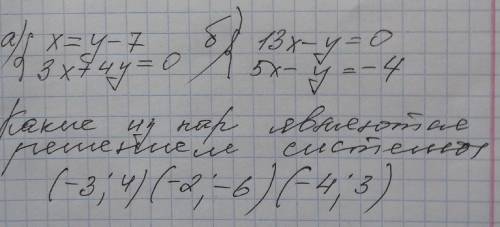 а) { x = y - 7 б) { 13x - y = 0
3x + 4y = 0 5x - y = -4
Какие из пар являются
решением системы
(-3; 4) (-2; -6) (-4; 3)